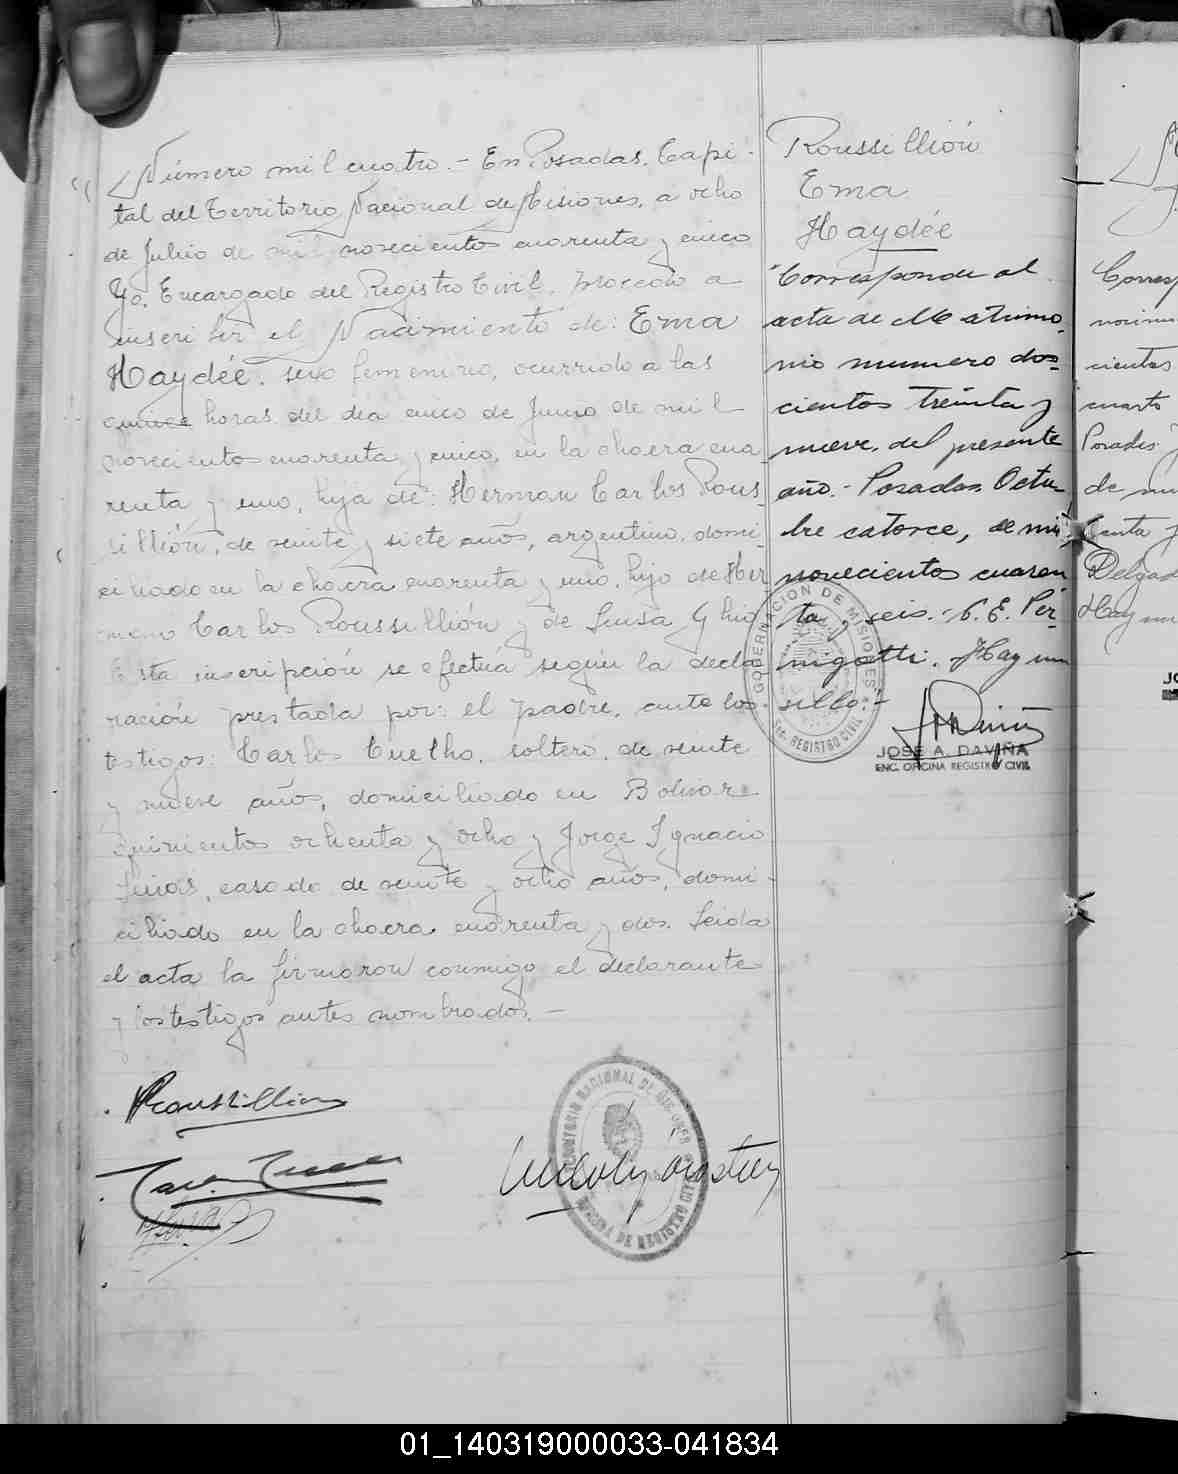 Número mil cuatro.- En Posadas, Capi-
tal del Territorio Nacional de Misiones, a ocho
de Julio de mil novecientos cuarenta y cinco
Yo, Encargado del Registro Civil, procedo a
inscribir el Nacimiento de: Ema
Haydée, sexo femenino, ocurrido a las
quince horas del día cinco de Junio de mil
novecientos cuarenta y cinco, en la chacra cua
renta y uno, hija de: Herman Carlos Rous-
sillión, de veinte y siete años, argentino, domi-
ciliado en la chacra cuarenta y uno, hijo de Her
mann Carlos Roussillión y de Luisa Ghio
Esta inscripción se efectúa según la decla
ración prestada por: el padre, ante los
testigos: Carlos Cuelho, soltero, de veinte
y nueve años, domiciliado en Bolivar
quinientos ochenta y ocho y Jorge Ignacio
casado de veinte y ocho años, domi-
ciliado en la chacra cuarenta y dos. Leida
el acta la firmaron conmigo el declarante
y los testigos antes nombrados.-
Roussillion
REGISTRO CIVIL
Roussillión
Ema
Haydée
"Corresponde al
acta de Matrimo
nio numero dos-
cientos treinta y
nueve, del presente
año.- Posadas, Octu
bre catorce, de mil
novecientos cuaren
ta y seis.- C. E. Per-
nigotti. Hay un
sello.-
GOBERNACION DE MISIONES
REGISTRO CIVIL
JOSE A. DAVIÑA
ENC. OFICINA REGISTRO CIVIL
Corresp
cientos
cuarto
Posadas
de mi
Delgad
Hay un
JO
01_140319000033-041834